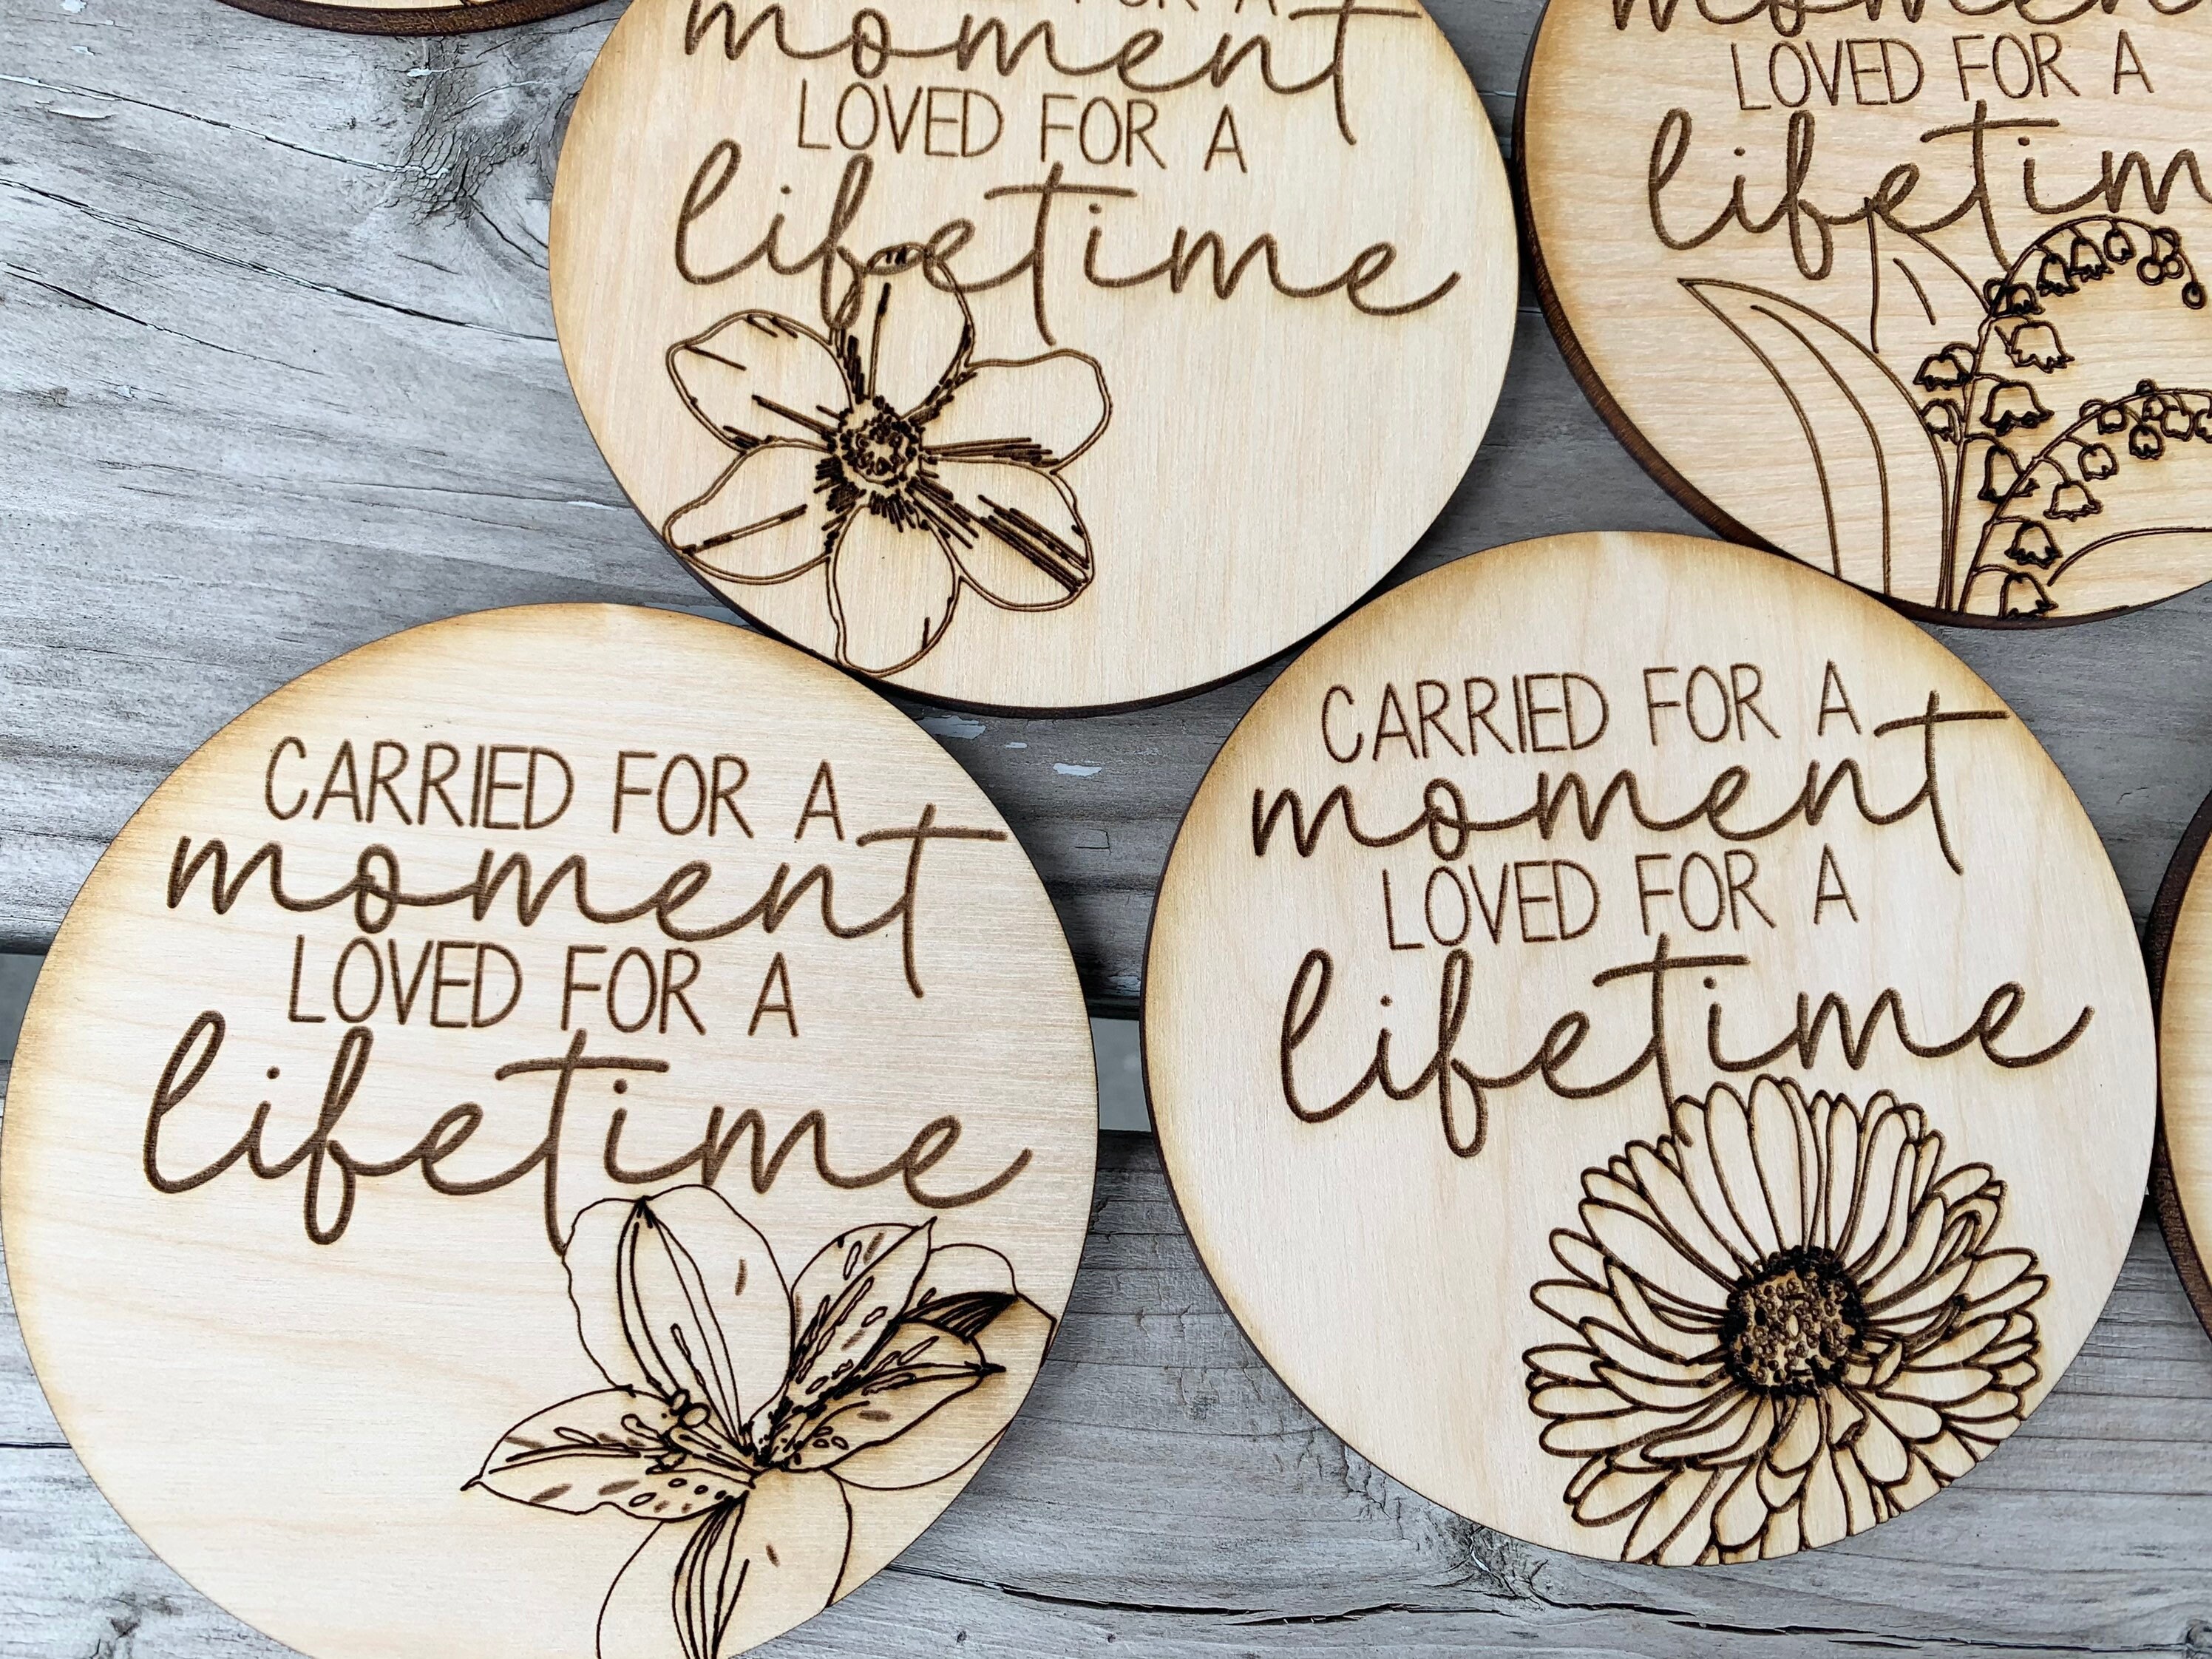 FOR A
moment
LOVED FOR A
lifetime
moment
LOVED FOR A
CARRIED FOR A
moment
LOVED FOR A
lifetime
CARRIED FOR A
moment
LOVED FOR A
lifetime